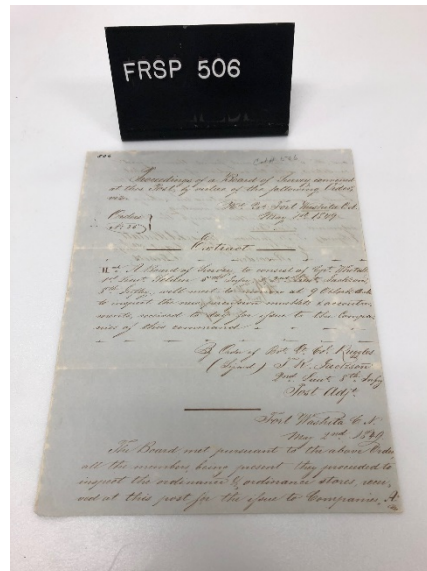 FRSP 506
Proceedings of a Board of Survey convened
at this Post, by virtue of the following Order,
viz:
Hd. Qrs. Fort Washita C.N.
May 1st 1849
Orders
No.
Extract
A Board of Survey to consist of
1st Lieut. 5th Infy & 2nd Lieut. Jackson
5th Infy will meet to morrow at 9 O'clock A.M.
to inspect the new percussion muskets & accoutre-
ments, received to day for issue to the Compa-
nies of this command
By Order of
(Signed) Jackson
2nd Lieut 5th Infy
Post Adjt.
Fort Washita C.N.
May 2nd 1849
The Board met pursuant to the above Order
all the members being present they proceeded to
inspect the ordnance & ordnance stores, recei-
ved at this post for the issue to Companies, A.